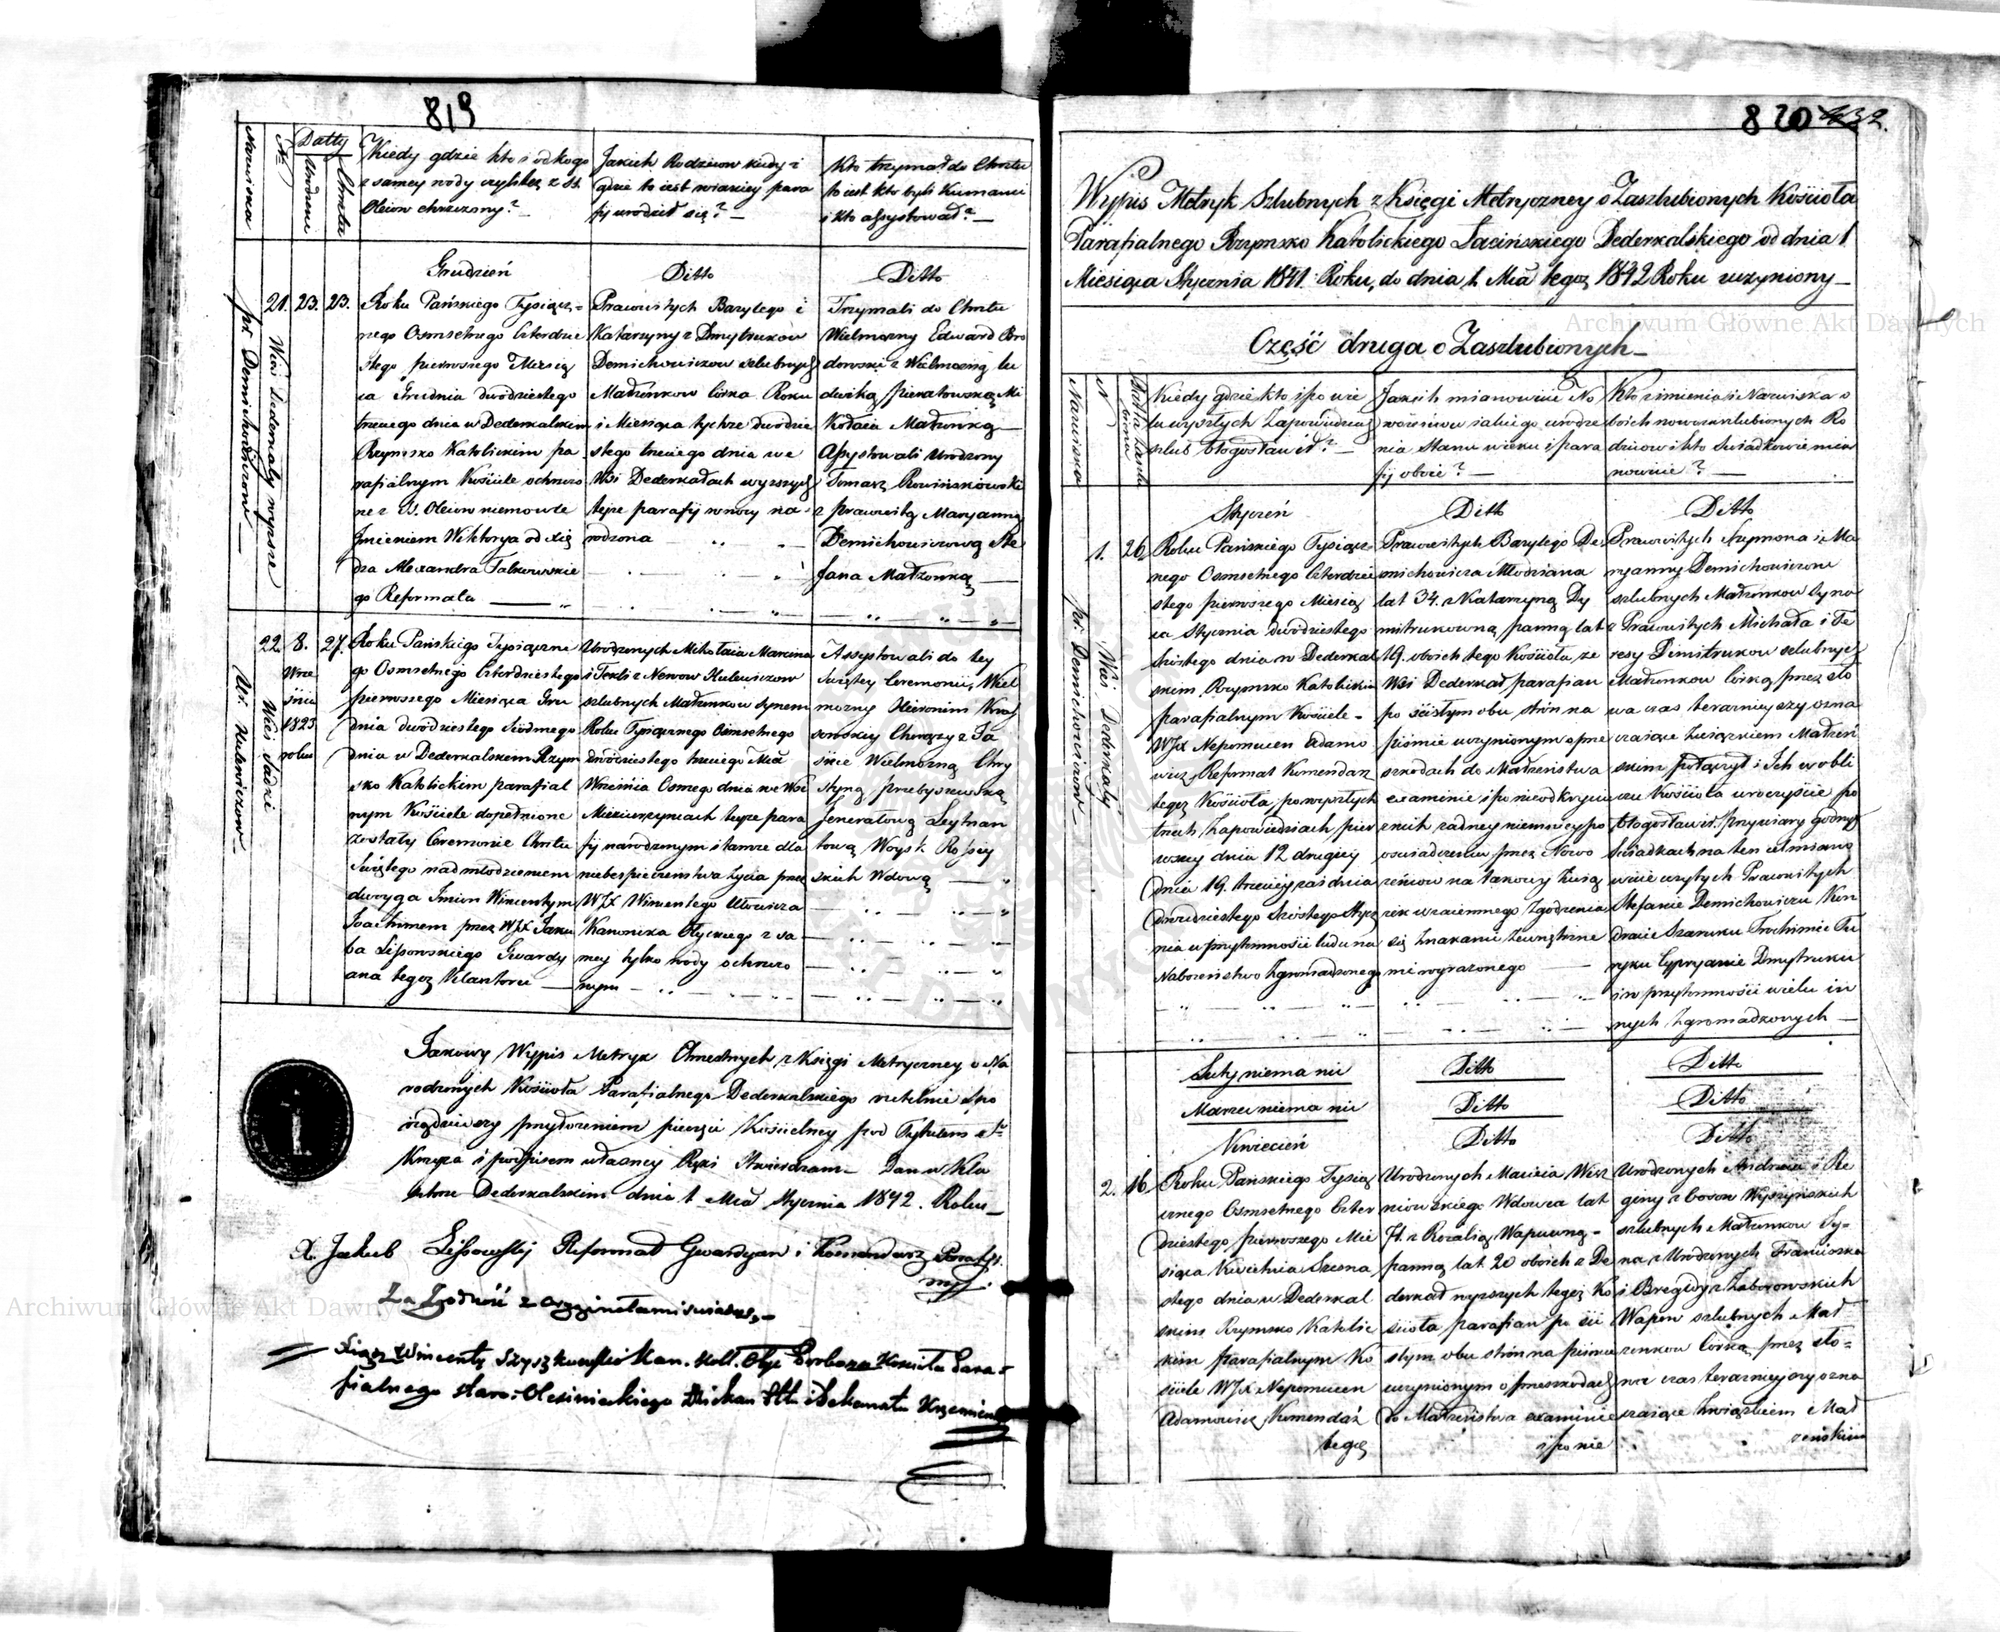 819
Nazwiska
№
Datty
Urodzeń
Chrztu
Kiedy gdzie kto i od kogo
z samey wody czyli też z SS.
Oleiow chrzczony? —
Jakich Rodziców kiedy i
gdzie to iest w iakiey para
fij urodził się? —
Kto trzymał do Chrztu
to iest kto byli Kumami
i kto assystował? —
Grudzień
Ditto
Ditto
pr Demichowiczow
Wieś Dederkały wyższe
21. 23. 23.
Roku Pańskiego Tysiącz=
nego Osmsetnego Czterdzie
stego pierwszego Miesią
ca Grudnia dwudziestego
trzeciego dnia w Dederkalskim
Rzymsko Katolickim pa
rafialnym Kościele ochrzczo
ne z SS. Oleiow niemowle
Imieniem Wiktorya od Xię
dza Alexandra Falkowskie
go Reformata
Prawowitych Bazylego i
Katarzyny z Dmytrukow
Demichowiczow szlubnych
Małżonkow córka Roku
i Miesiąca tychże dwudzie
stego trzeciego dnia we
Wsi Dederkałach wyższych
teyże parafij w nocy na=
rodzona
Trzymali do Chrztu
Wielmożny Edward
z Wielmożną Lu
dwiką
Małżonką
Assystowali Urodzony
Tomasz
z prawowitą Maryanną
Demichowiczową Ste
fana Małżonką
Ur. Kulewiczow
Wieś Sadki
22. 8. 27.
Wrze
śnia
1823
roku
Roku Pańskiego Tysiączne
go Osmsetnego Czterdziestego
pierwszego Miesiąca Gru
dnia dwudziestego siódmego
dnia w Dederkalskim Rzym
sko Katolickim parafial
nym Kościele dopełnione
zostały Ceremonie Chrztu
Świętego nad młodzieniem
dwoyga Imion Wincentym
Joachimem przez WJX Jaku
ba Lissowskiego Gwardy
ana tegoż Klasztoru
Urodzonych Mikołaia Marcina
i Tekli z Kulewiczow
szlubnych Małżonkow synem
Roku Tysiącznego Osmsetnego
dwudziestego trzeciego Mca
Września Osmego dnia we Wsi
teyże para
fij narodzonym i tamże dla
niebespieczeństwa życia przez
WJX Wincentego
Kanonika Ołyckiego z sa
mey tylko wody ochrzczo
nym
Assystowali do tey
Świętey Ceremonii, Wiel
możny Hieronim
Chorąży z Ja
śnie Wielmożną Chry
styną Przebyszewską
Jenerałową Leytnan
tową Woysk Rossyi
skich Wdową
Jakowy Wypis Metryk Chrzestnych z Księgi Metryczney o Na
rodzonych Kościoła Parafialnego Dederkalskiego rzetelnie spo
rządziwszy przyłożeniem pieczęci Kościelney pod Tytułem Sgo
Krzyża i podpisem własney Ręki stwierdzam. Dan w Kla
sztorze Dederkalskim dnia 1 Mca Stycznia 1842. Roku
X. Jakub Lissowskij Reformat Gwardyan i Komendarz Parafij.
mp.
Za Zgodność z Oryginałami świadczę
Xiądz Wincenty Szyszkowski Kan. Koll. Ołyc. Proboszcz Kościoła Para=
fialnego Staro-Oleximieckiego Dziekan Ptu i Dekanatu Krzemien
820 432.
Wypis Metryk Szlubnych z Księgi Metryczney o Zaszlubionych Kościoła
Parafialnego Rzymsko Katolickiego Łacińskiego Dederkalskiego od dnia 1
Miesiąca Stycznia 1841. Roku, do dnia 1. Mca tegoż 1842 Roku uczyniony
Część druga o Zaszlubionych
Nazwiska
N
Datta Zaszlu
bienia
Kiedy gdzie kto i po wie
lu wyszłych Zapowiedziach
szlub błogosławił? —
Jakich mianowicie No
wożeńcow iakiego urodze
nia Stanu wieku i para
fij oboie? —
Kto z imienia i Nazwiska o
boich nowozaszlubionych Ro
dzicow i kto Świadkowie mia
nowicie? —
Styczeń
Ditto
Ditto
pr. Demichowiczow
Wieś Dederkały
1. 26.
Roku Pańskiego Tysiącz=
nego Osmsetnego Czterdzie
stego pierwszego Miesią
ca Stycznia dwudziestego
szóstego dnia w Dederkal
skim Rzymsko Katolickim
parafialnym Kościele
WJX Nepomucen Adamo
wicz Reformat Komendarz
tegoż Kościoła, po wyszłych
trzech Zapowiedziach pier
wszey dnia 12 drugiey
dnia 19. trzeciey zaś dnia
dwudziestego szóstego Stycz
nia w przytomności ludu na
Nabożeństwo Zgromadzonego
Prawowitych Bazylego De
michowicza Młodziana
lat 34. z Katarzyną Dy
mitrukowną panną lat
19. oboich tego Kościoła ze
Wsi Dederkał parafian
po ścisłym obu stron na
piśmie uczynionym o prze
szkodach do Małżeństwa
examinie i po nieodkryciu
z nich żadney niemniey po
oświadczeniu przez Nowo
żeńcow na takowy Zwią
zek wzaiemnego Zgodzenia
się Znakami Zewnętrzne
mi wyrażonego
Prawowitych Szymona i Ma
ryanny Demichowiczow
szlubnych Małżonkow syna
z Prawowitych Michała i Te
resy Dimitrukow szlubnych
Małżonkow córką przez sło
wa czas teraźnieyszy ozna
czaiące Związkiem Małżeń
skim połączył i Ich w obli
czu Kościoła uroczyście po
błogosławił przy wiary godnych
Świadkach na ten cel miano
wicie użytych Prawowitych
Stefanie Demichowiczu Kon
dracie Trochimie Tu
ryku Cypryanie Dmytruku
i w przytomności wielu in
nych Zgromadzonych
Luty niema nic
Ditto
Ditto
Marzec niema nic
Ditto
Ditto
Kwiecień
Ditto
Ditto
2. 16.
Roku Pańskiego Tysią
cznego Osmsetnego Czter
dziestego pierwszego Mie
siąca Kwietnia Szesna
stego dnia w Dederkal
skim Rzymsko Katolic
kim parafialnym Ko
ściele WJX Nepomucen
Adamowicz Komendarz
tegoż
Urodzonych Macieia Wisz
niowskiego Wdowca lat
z Rozalią
panną lat 20 oboich z De
derkał wyższych tegoż Ko
ścioła parafian po ści
słym obu stron na piśmie
uczynionym o przeszkodach
do Małżeństwa examinie
i po nie
Urodzonych Andrzeia i Re
giny z
szlubnych Małżonkow Sy=
na z Urodzonych Franciszka
i Brygidy z Zaborowskich
szlubnych Mał
żonkow córką przez sło=
wa czas teraźnieyszy ozna
czaiące Związkiem Mał
żeńskim
Archiwum Główne Akt Dawnych
Archiwum Główne Akt Dawnych